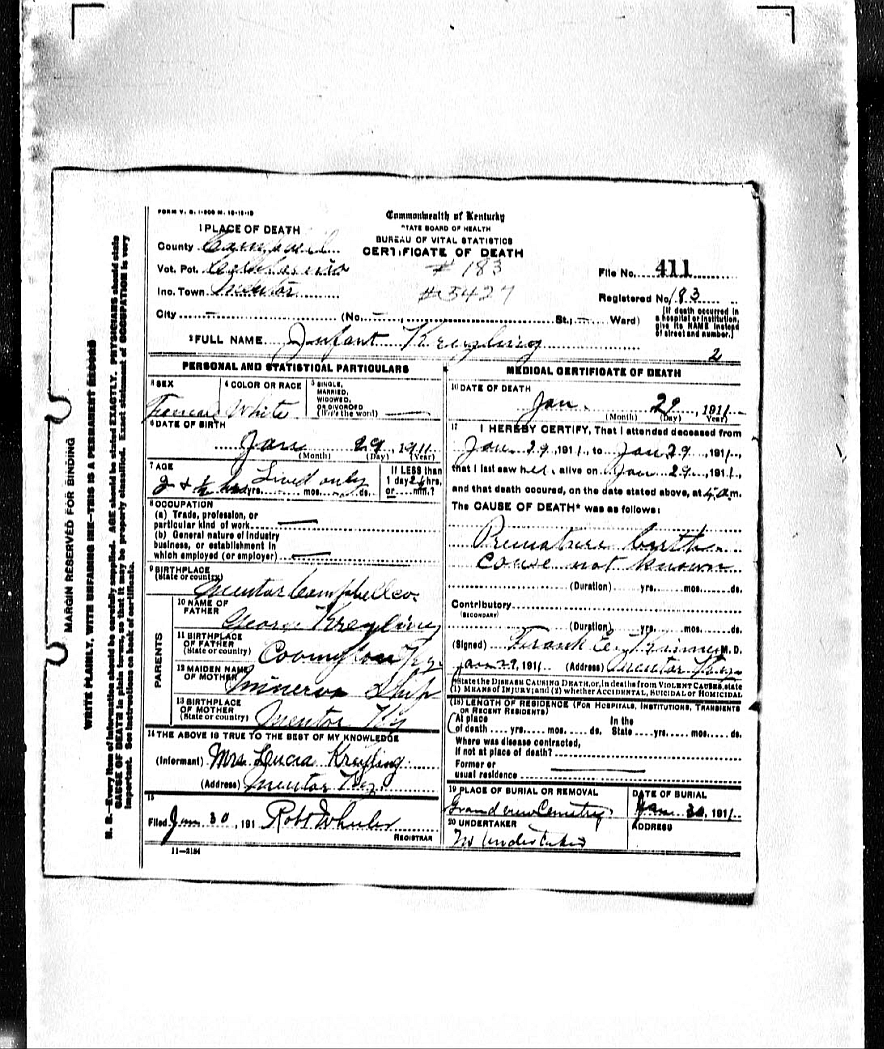 FORM V. S. 1-
Commonwealth of Kentucky
STATE BOARD OF HEALTH
BUREAU OF VITAL STATISTICS
CERTIFICATE OF DEATH
1 PLACE OF DEATH
County
Vot. Pct.
Inc. Town Mentor
# 183
#5427
File No. 411
Registered No. 183
City (No. St., Ward)
[If death occurred in a hospital or institution, give its NAME instead of street and number.]
2 FULL NAME Infant Kreyling
2
PERSONAL AND STATISTICAL PARTICULARS
3 SEX
4 COLOR OR RACE
White
5 SINGLE, MARRIED, WIDOWED, OR DIVORCED
(Write the word)
6 DATE OF BIRTH
Jan 29, 1911
(Month) (Day) (Year)
7 AGE
Lived only
2 & ½ hrs yrs. mos. ds.
If LESS than 1 day hrs. or min.?
8 OCCUPATION
(a) Trade, profession, or particular kind of work
(b) General nature of industry business, or establishment in which employed (or employer)
9 BIRTHPLACE
(State or country)
Mentor Campbell co.
PARENTS
10 NAME OF FATHER
George Kreyling
11 BIRTHPLACE OF FATHER
(State or country)
Covington Ky.
12 MAIDEN NAME OF MOTHER
Minerva
13 BIRTHPLACE OF MOTHER
(State or country)
Mentor Ky
14 THE ABOVE IS TRUE TO THE BEST OF MY KNOWLEDGE
(Informant) Mrs. Kreyling
(Address) Mentor Ky.
15
Filed Jan 30, 191 Robt Wheeler
REGISTRAR
11-2184
MEDICAL CERTIFICATE OF DEATH
16 DATE OF DEATH
Jan. 29, 1911
(Month) (Day) (Year)
17 I HEREBY CERTIFY, That I attended deceased from
Jan 29, 1911, to Jan 29, 1911,
that I last saw h alive on Jan 29, 1911,
and that death occured, on the date stated above, at m.
The CAUSE OF DEATH* was as follows:
Premature birth
cause not known
(Duration) yrs. mos. ds.
Contributory
(SECONDARY)
(Duration) yrs. mos. ds.
(Signed) Frank M. D.
Jan 29, 1911 (Address) Mentor Ky
*State the DISEASE CAUSING DEATH, or, in deaths from VIOLENT CAUSES, state
(1) MEANS of INJURY; and (2) whether ACCIDENTAL, SUICIDAL or HOMICIDAL
(18) LENGTH OF RESIDENCE (FOR HOSPITALS, INSTITUTIONS, TRANSIENTS OR RECENT RESIDENTS)
At place of death yrs. mos. ds. In the State yrs. mos. ds.
Where was disease contracted, if not at place of death?
Former or usual residence
19 PLACE OF BURIAL OR REMOVAL
Grandview Cemetry
DATE OF BURIAL
Jan 30, 1911
20 UNDERTAKER
No Undertaker
ADDRESS
MARGIN RESERVED FOR BINDING
WRITE PLAINLY, WITH UNFADING INK—THIS IS A PERMANENT RECORD
N. B.—Every item of information should be carefully supplied. AGE should be stated EXACTLY. PHYSICIANS should state
CAUSE OF DEATH in plain terms, so that it may be properly classified. Exact statement of OCCUPATION is very
important. See instructions on back of certificate.